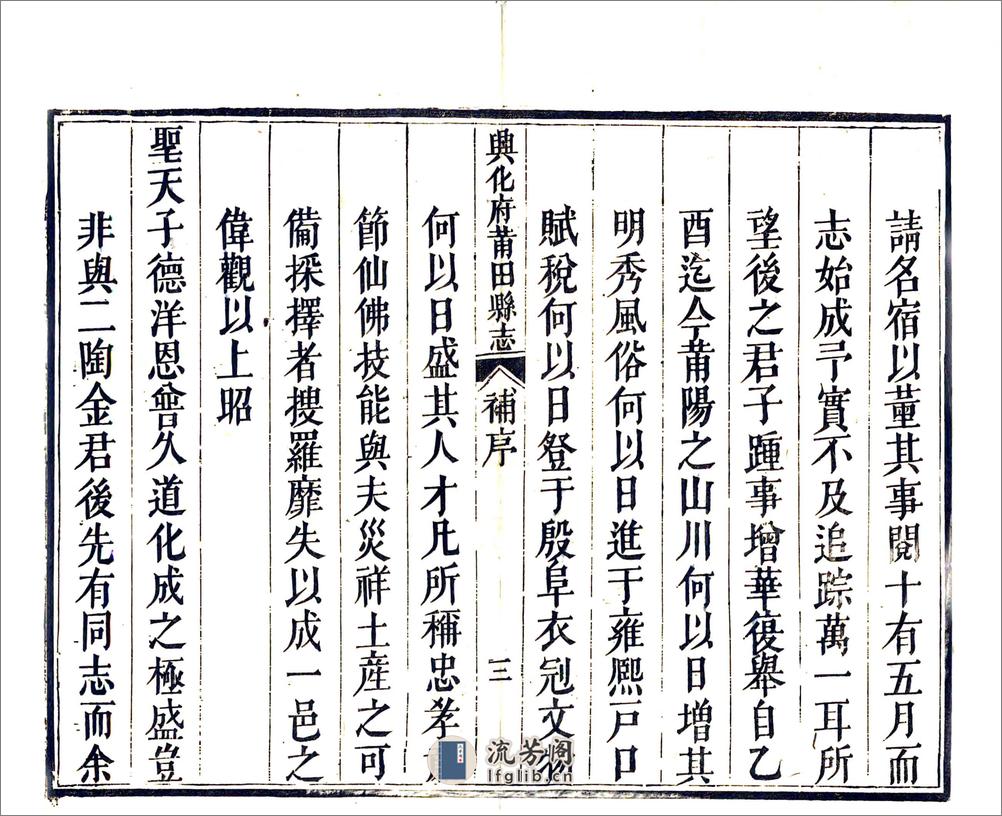 請名宿以董其事閱十有五月而
志始成予實不及追踪萬一耳所
望後之君子踵事增華復舉自乙
酉迄今莆陽之山川何以日增其
明秀風俗何以日進于雍熈戸口
賦稅何以日登于殷阜衣冠文物
興化府莆田縣志 補序 三
何以日盛其人才凡所稱忠孝
節仙佛技能與夫災祥土産之可
備採擇者搜羅靡失以成一邑之
偉觀以上昭
聖天子德洋恩普久道化成之極盛豈
非與二陶金君後先有同志而余
流芳阁
lfglib.cn